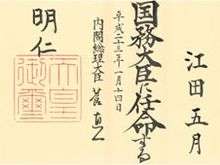 江田五月
国務大臣に任命する
平成二十三年一月十四日
内閣総理大臣 菅直人
明仁
天皇御璽